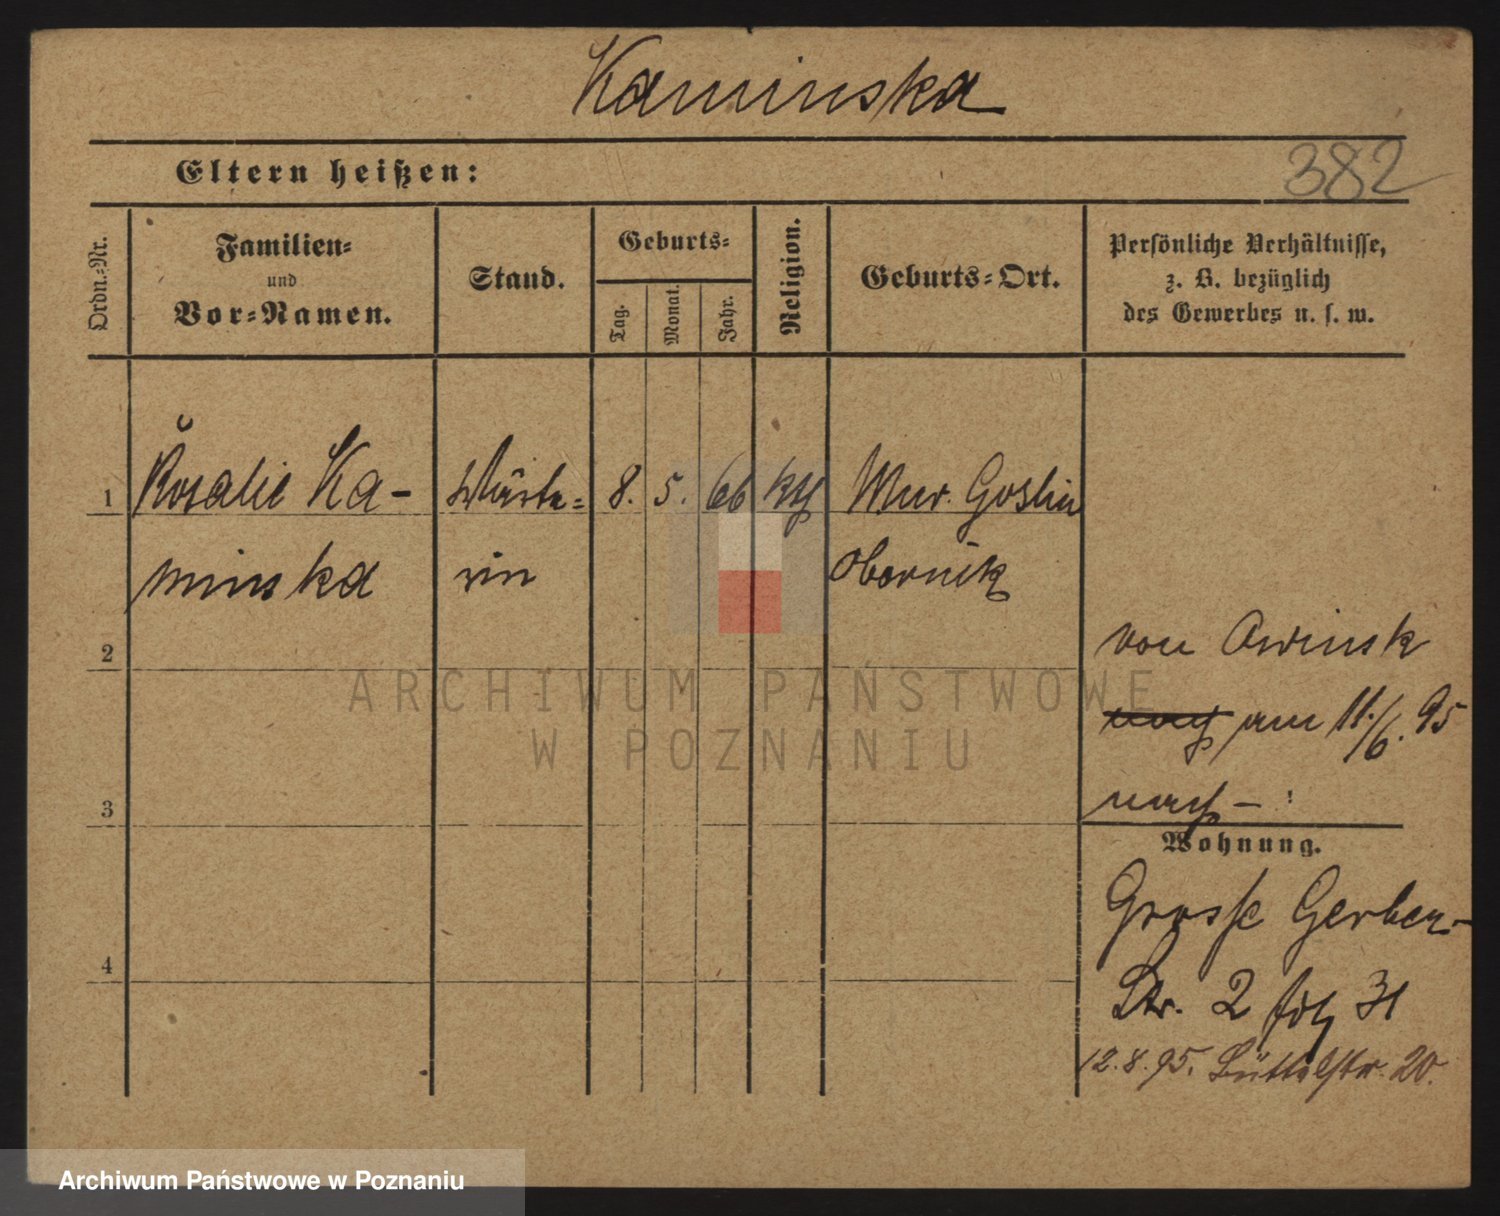 Kaminska
Eltern heißen:
382
Ordn.-Nr.
Familien-
und
Vor-Namen.
Stand.
Geburts-
Tag.
Monat.
Jahr.
Religion.
Geburts-Ort.
Persönliche Verhältnisse,
z. B. bezüglich
des Gewerbes u. s. w.
1
Rosalie Ka-
Wärte-
8.
5.
66
kth
Mur. Goslin
minska
rin
Obornik
von Owinsk
2
nach am 11./6. 95
3
nach -
Wohnung.
Grosse Gerber-
4
Str. 2 31
12.8.95. Büttelstr. 20.
ARCHIWUM PAŃSTWOWE
W POZNANIU
Archiwum Państwowe w Poznaniu